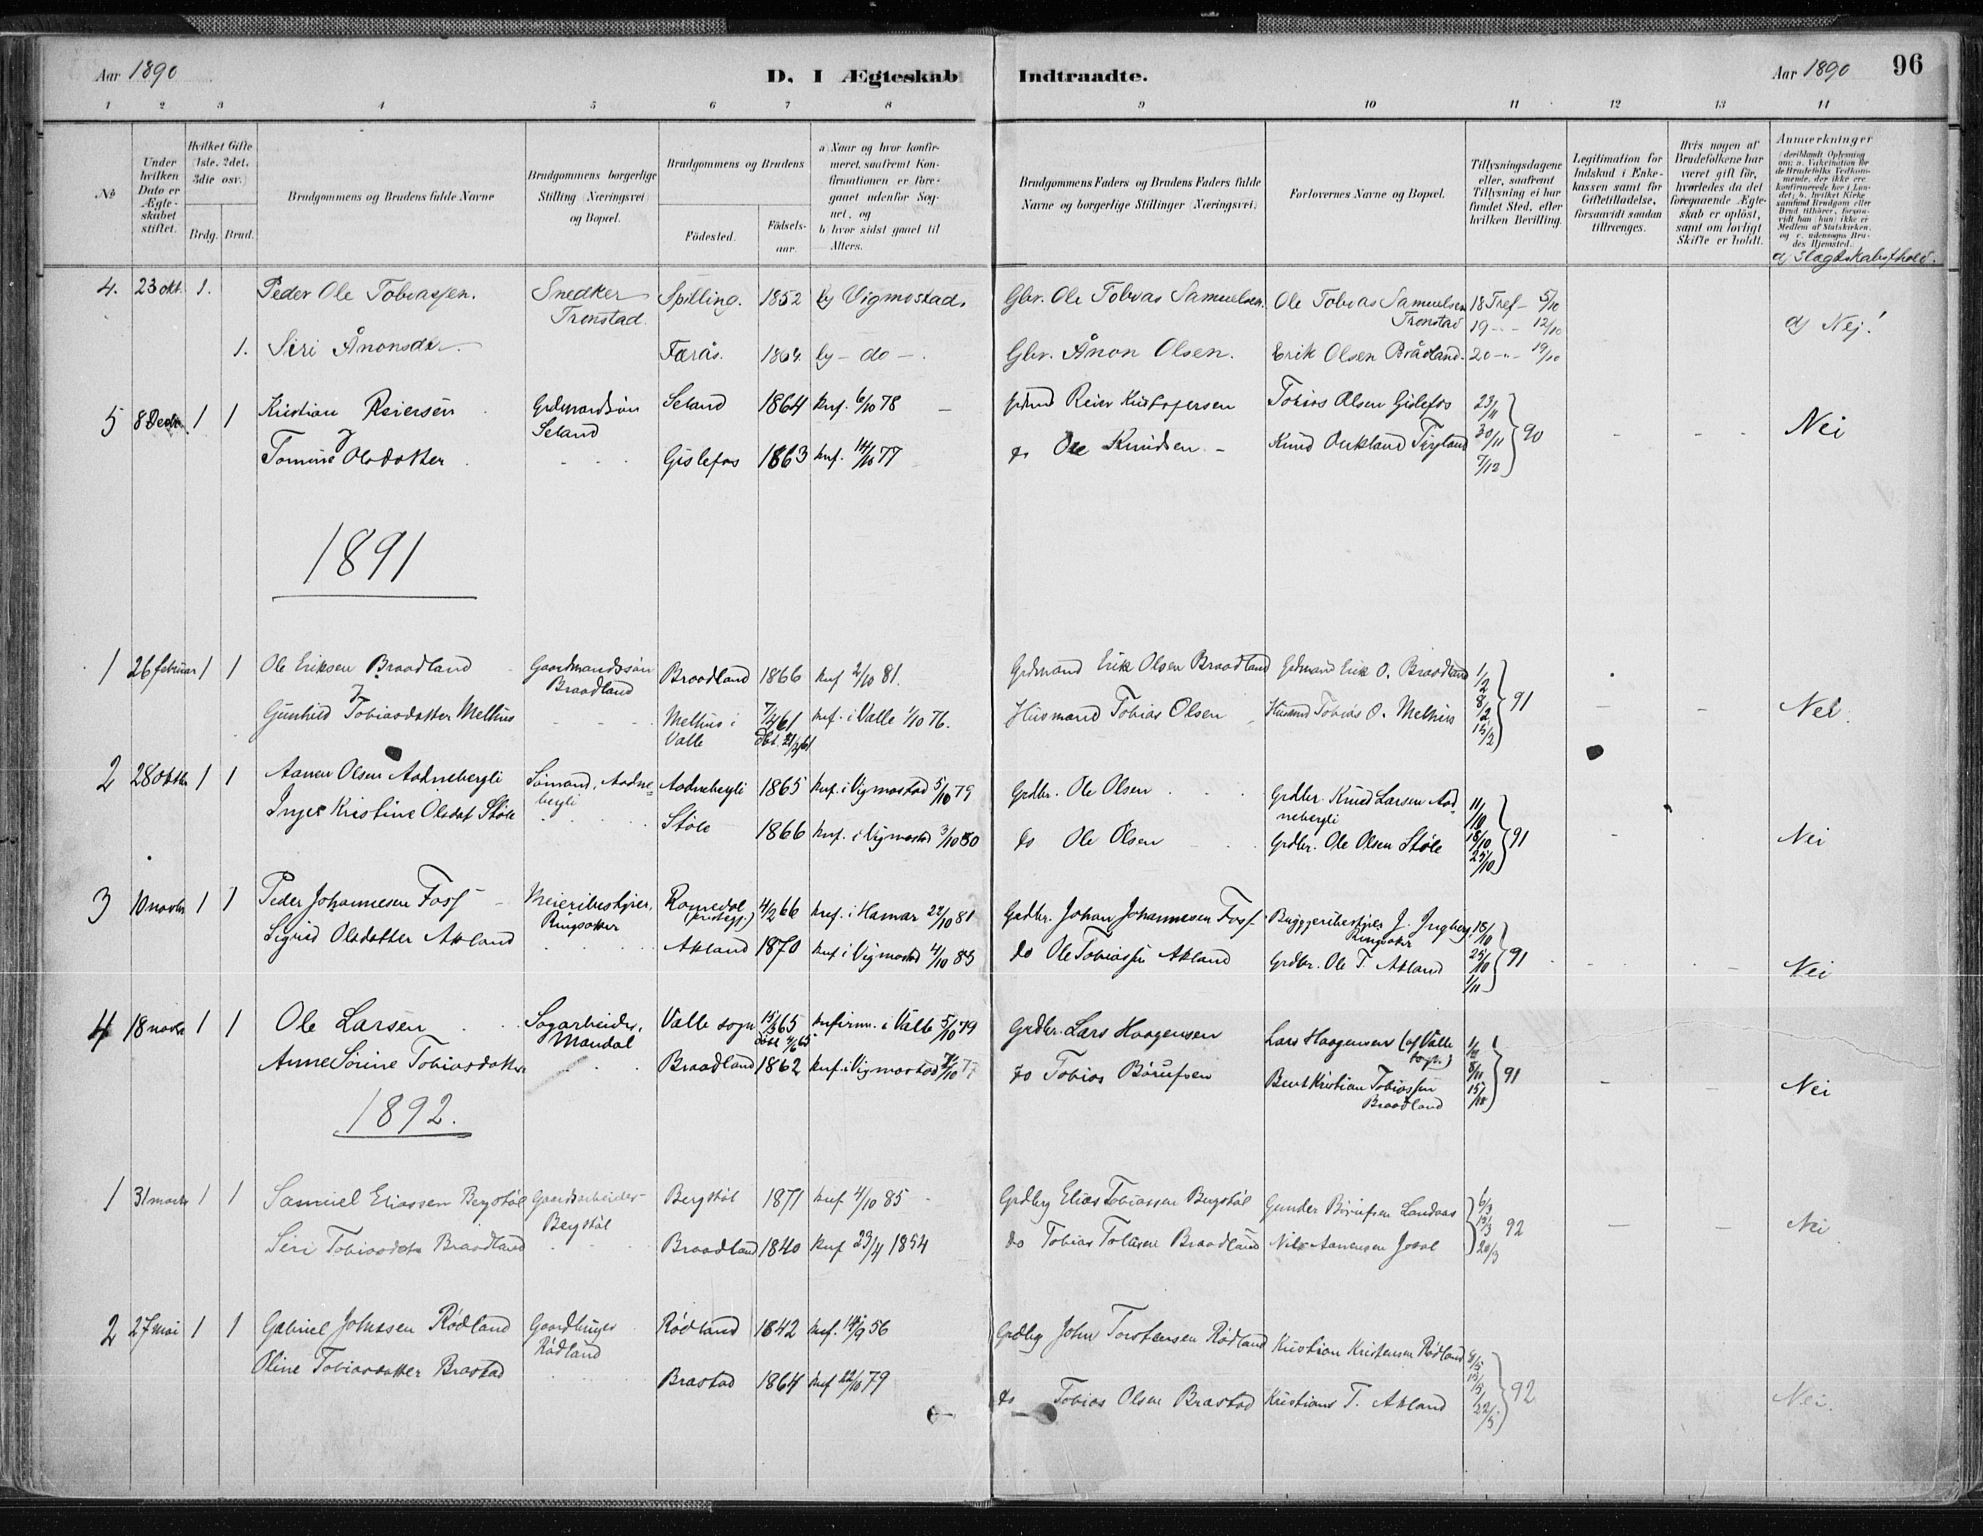 Aar 1890
D. I Ægteskab Indtraadte.
Aar 1890 96
1 2 3 4 5 6 7 8 9 10 11 12 13 14
№
Under hvilken Dato er Ægteskabet stiftet.
Hvilket Gifte (1ste, 2det, 3die osv.)
Brdg. Brud.
Brudgommens og Brudens fulde Navne
Brudgommens borgerlige Stilling (Næringsvei) og Bopæl.
Brudgommens og Brudens
Fødested. Fødselsaar.
a) Naar og hvor konfirmeret, saafremt Konfirmationen er foregaaet udenfor Sognet, og
b) hvor sidst gaaet til Alters.
Brudgommens Faders og Brudens Faders fulde Navne og borgerlige Stillinger (Næringsvei).
Forlovernes Navne og Bopæl.
Tillysningsdagene eller, saafremt Tillysning ei har fundet Sted, efter hvilken Bevilling.
Legitimation for Indskud i Enkekassen samt for Giftetilladelse, forsaavidt saadan tiltrænges.
Hvis nogen af Brudefolkene har været gift før, hvorledes da det foregaaende Ægteskab er opløst, samt om lovligt Skifte er holdt.
Anmærkninger
(deriblandt Oplysning om: a. Vakcination for de Brudefolks Vedkommende, der ikke ere konfirmerede her i Landet, b. hvilket Kirkesamfund Brudgom eller Brud tilhører, forsaavidt han (hun) ikke er Medlem af Statskirken, og c. udensogns Brudes Hjemsted.
d) Slægtskabsfhold.
4. 23 okt. 1. Peder Ole Tobiassen. Snedker Tronstad. Spilling. 1852 b) Vigmostad. Gbr. Ole Tobias Samuelsen. Ole Tobias Samuelsen Tronstad 18 Tref - 5/10
19 - - 12/10 d) Nej!
1. Siri Ånonsdr. Færås. 1864. b) - do - . Gbr. Ånon Olsen. Erik Olsen Brådland. 20 - - 19/10
5 8 Decbr. 1 1 Kristian Reiersen Grdmandsøn Seland Seland 1864 knf. 6/10 78 Reier Kristofersen Tobias Olsen Gislefos 23/11
30/11 90 Nei
Tomine Olsdatter Gislefos 1863 knf. 14/10 77 do Ole Knudsen Knud Aukland 7/12
1891
1 26 februar 1 1 Ole Eriksen Braadland Gaardmandssøn Braadland Braadland 1866 knf 2/10 81. Grdmand Erik Olsen Braadland Grdmand Erik O. Braadland 1/2
8/2 91 Nei
Gunhild Tobiasdatter Melhus Melhus i Valle 7/4 61 knf. i Valle 1/10 76. Husmand Tobias Olsen Husmd Tobias O. Melhus 15/2
2 28 oktbr 1 1 Aanen Olsen Aadnebergli Sømand, Aadnebergli Aadnebergli 1865 knf. i Vigmostad 5/10 79 Grdbr. Ole Olsen Grdbr. Knud Larsen Aadnebergli 11/10
18/10 91 Nei
Inger Kristine Olsdat Støle Støle 1866 knf. i Vigmostad 3/10 80 do Ole Olsen Grdbr. Ole Olsen Støle 25/10
3 10 novbr 1 1 Peder Johannesen Foss Meieribestyrer, Ringsaker Romedal 4/2 66 knf. i Hamar 22/10 81 Grdbr. Johan Johannesen Foss J. Ingberg, Ringsaker 18/10
25/10 91 Nei
Sigrid Olsdatter Akland Akland 1870 knf i Vigmostad 4/10 85 do Ole Tobiassen Akland Grdbr. Ole T. Akland 1/11
4 18 novbr 1 1 Ole Larsen Sagarbeider, Mandal Valle sogn 15/3 65 konfirm. i Valle 5/10 79 Grdbr. Lars Haagensen Lars Haagensen (af Valle sogn) 1/11
8/11 91 Nei
Anne Sørine Tobiasdatter Braadland 1862 knf. i Vigmostad 7/10 77 do Tobias Børufsen Bent Kristian Tobiassen Braadland 15/11
1892.
1 31 marts 1 1 Samuel Eliassen Bergstøl Gaardsarbeider Bergstøl Bergstøl 1871 knf 4/10 85 Grdbrg Elias Tobiassen Bergstøl Gunder Børufsen Landaas 6/3
13/3 92 Nei
Siri Tobiasdatr Braadland Braadland 1840 knf 23/4 1854 do Tobias Braadland Nils Aanensen 20/3
2 27 mai 1 1 Gabriel Johnsen Rødland Gaardbruger Rødland Rødland 1842 knf. 14/9 56 Grdbrg John Torstensen Rødland Kristian Kristensen Rødland 8/5
15/5 92 Nei.
Oline Tobiasdatter Brastad Brastad 1864 knf 12/10 79 do Tobias Olsen Brastad Kristians T. Akland 22/5